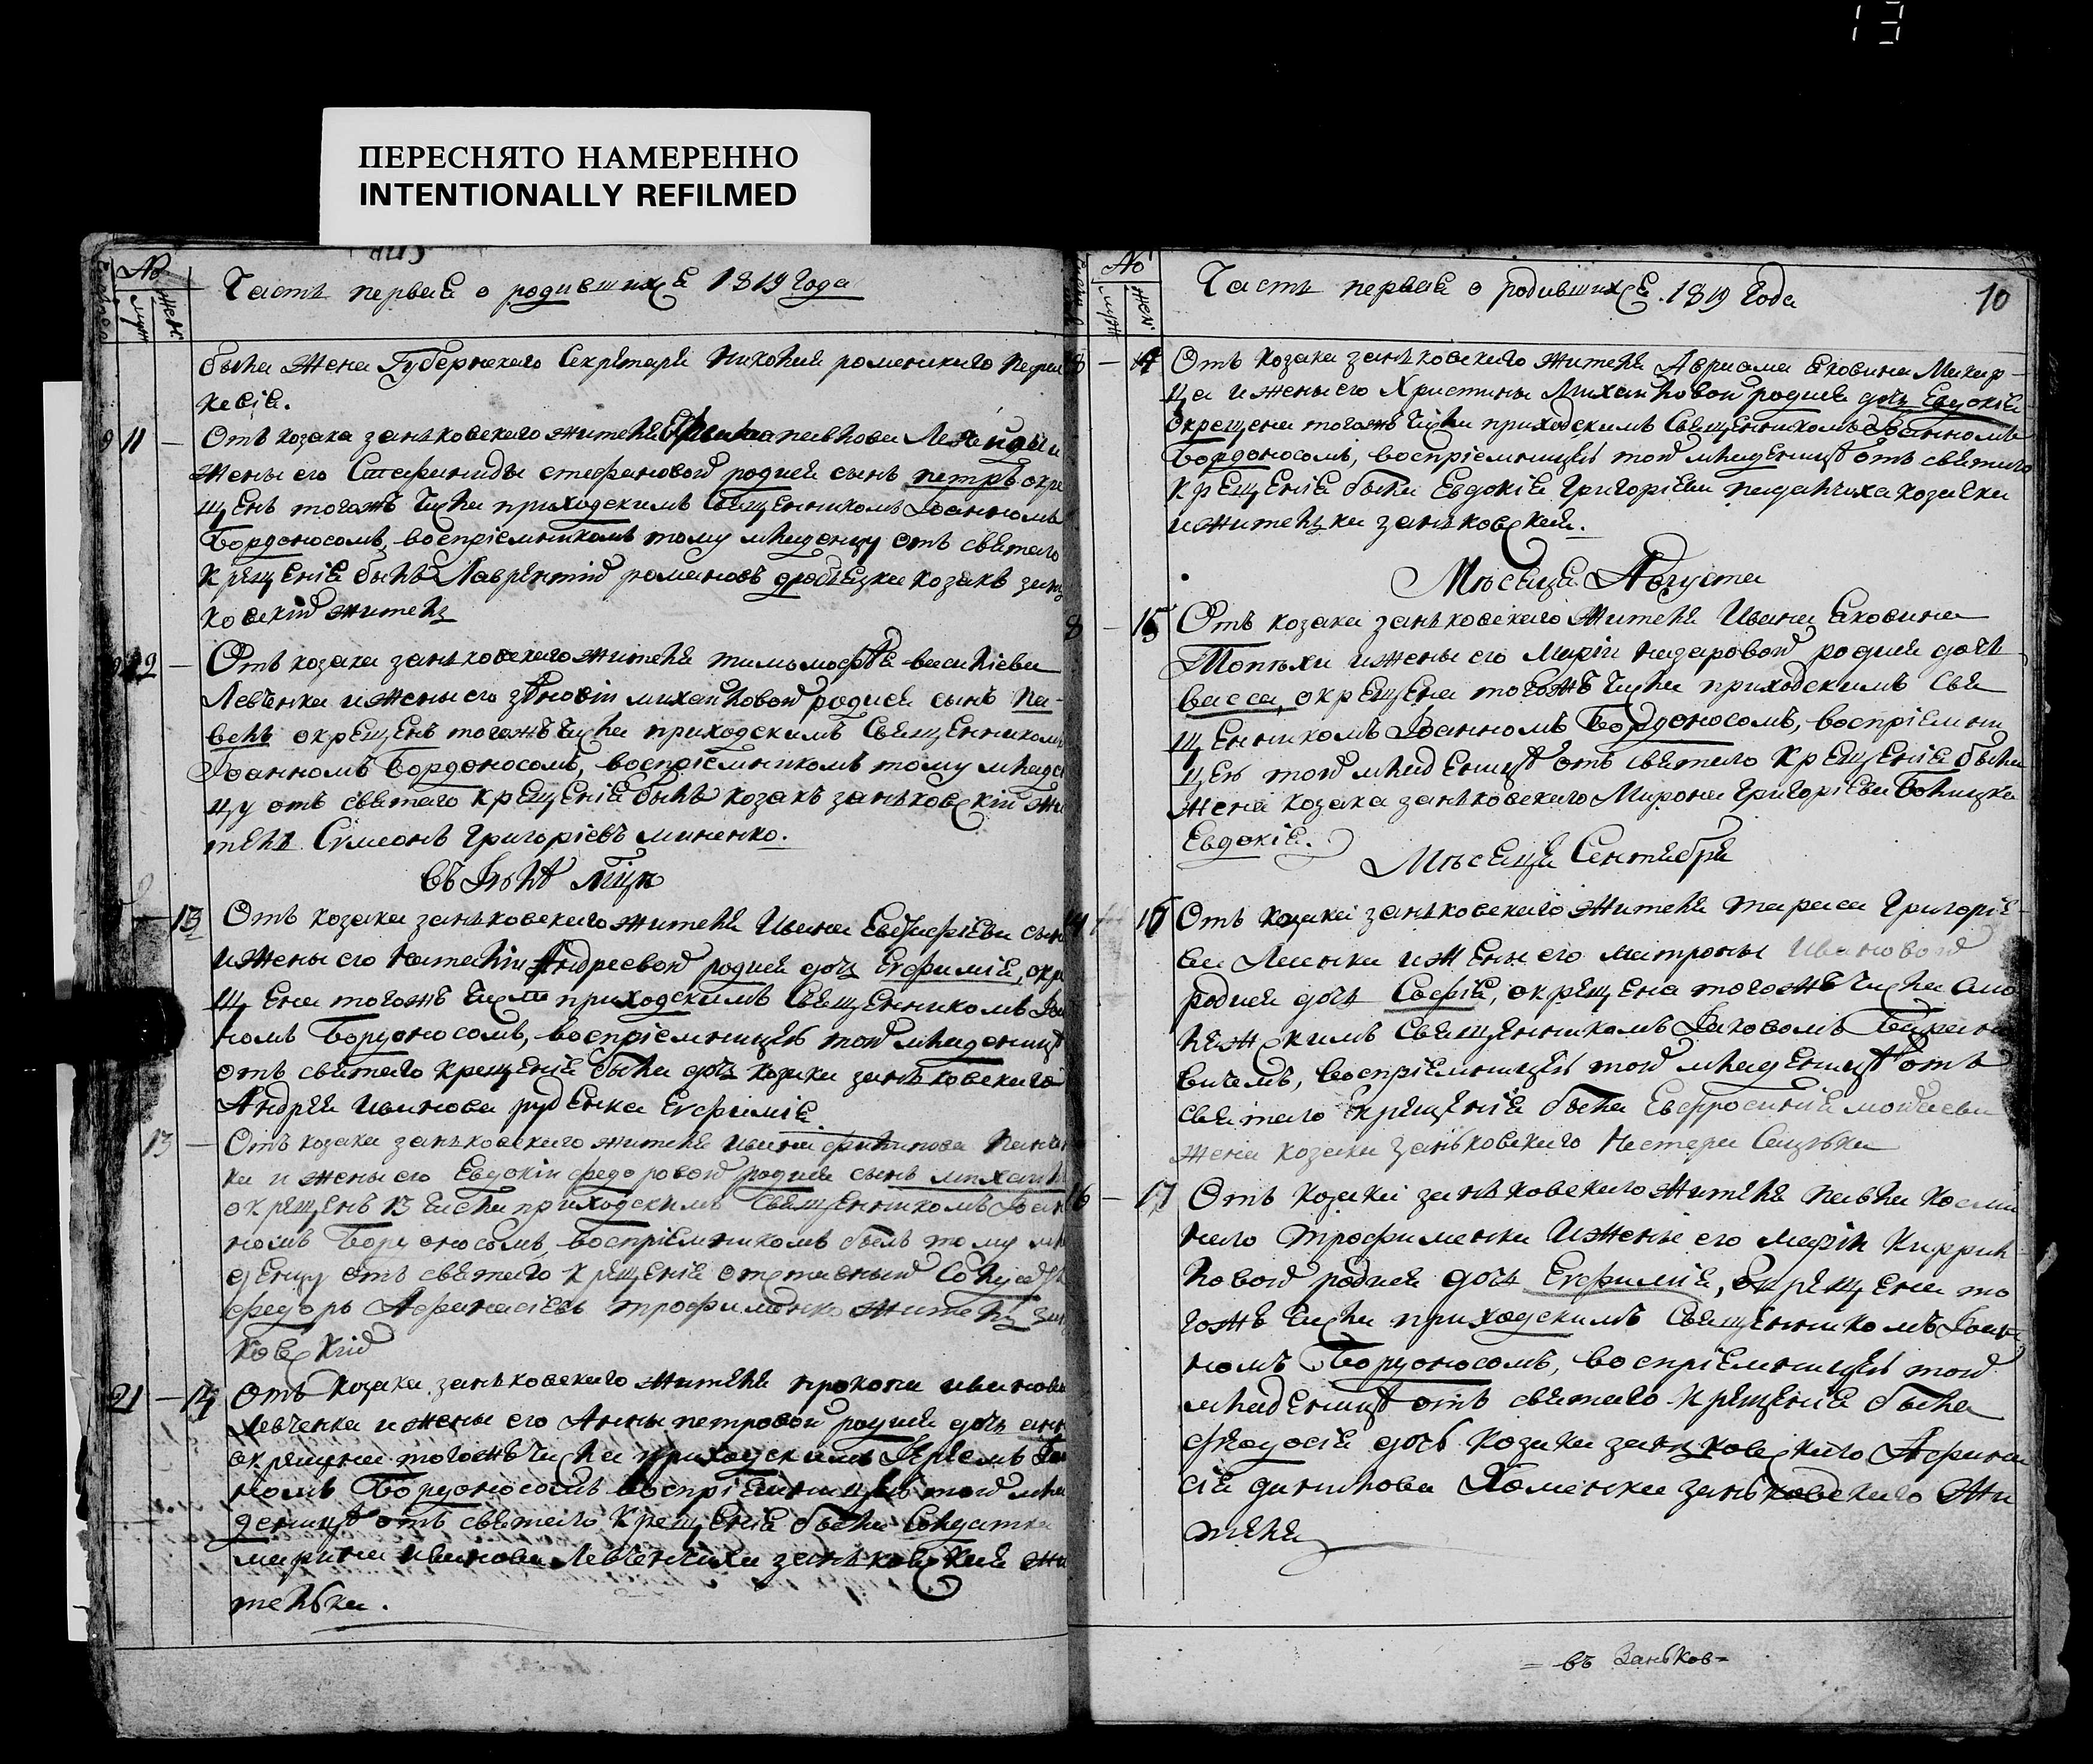 13
ПЕРЕСНЯТО НАМЕРЕННО
INTENTIONALLY REFILMED
№
муж
жен
Часть первая о родившихся 1819 года
была жена Губернскаго Секретаря Николая роменскаго
11 Отъ козака заньковскаго жителя павлова
жены его Стефаниды стефановой родися сынъ петръ окре
щенъ тогожъ числа приходскимъ Священникомъ Іоанномъ
Бордоносомъ, воспріемникомъ тому младенцу отъ святаго
крещенія былъ Лаврентій романовъ козакъ зань
ковскій житель
12 Отъ козака заньковскаго жителя тимофѣя василіева
Левченка и жены его зѣновіи михайловой родися сынъ па-
велъ окрещенъ тогожъ числа приходскимъ Священникомъ
Іоанномъ Бордоносомъ, воспріемникомъ тому младе
нцу отъ святаго крещенія былъ козакъ заньковскій жи
тель Сѵмеонъ Григоріевъ миненко.
въ Іюлѣ мцѣ
13 Отъ козака заньковскаго жителя Ивана
и жены его Наталіи Андреевой родися дочь Евфимія, окре
щена тогожъ числа приходскимъ Священникомъ Іоан
номъ Бордоносомъ, воспріемницею той младеницѣ
отъ святаго крещенія была дочь козака заньковскаго
Андрея Иванова руденка Евфимія
13 Отъ козака заньковскаго жителя ивана филипова
ка и жены его Евдокіи федоровой родися сынъ михаилъ
окрещенъ 13 числа приходскимъ Священникомъ Іоан
номъ Бордоносомъ, воспріемникомъ былъ тому мла
денцу отъ святаго крещенія отставный Солдатъ
федоръ Афанасіевъ трофименко житель зань
ковскій
21 14 Отъ козака заньковскаго жителя прокопа иванова
Левченка и жены его Анны петровой родися дочь анн
окрещена тогожъ числа приходскимъ Іереемъ Іоан
номъ Бордоносомъ воспріемницею той мла
деницѣ отъ святаго крещенія была Солдатка
марина иванова Левченчиха заньковская жи
телька.
№
муж
жен
Часть первая о родившихся 1819 года
10
Отъ козака заньковскаго жителя Авраама Яковина
ца и жены его Христины Михайловой родися дочь Евдокія
окрещена тогожъ числа приходскимъ Священникомъ Іоанномъ
Бордоносомъ, воспріемницею той младеницѣ отъ святаго
крещенія была Евдокія Григоріева козачка
и жителька заньковская.
Мѣсяца Августа
8 15 Отъ козака заньковскаго жителя Ивана Яковина
Топѣхи и жены его Маріи назаровой родися дочь
васса, окрещена тогожъ числа приходскимъ Свя
щенникомъ Іоанномъ Бордоносомъ, воспріемни
цею той младеницѣ отъ святаго крещенія была
жена козака заньковскаго Мирона Григоріева
Евдокія.
Мѣсяца Сентября
16 Отъ козака заньковскаго жителя тараса Григоріе-
ва и жены его матроны Ивановой
родися дочь Софія, окрещена тогожъ числа
Священникомъ Іаковомъ
вичемъ, воспріемницею той младеницѣ отъ
святаго крещенія была Евфросинія
жена козака заньковскаго Нестера
17 Отъ козака заньковскаго жителя павла косми
наго трофименка и жены его Маріи Кирил
ловой родися дочь Евфимія, окрещена то
гожъ числа приходскимъ Священникомъ Іоан
номъ Бордоносомъ, воспріемницею той
младеницѣ отъ святаго крещенія была
феодосія дочь козака заньковскаго Афана
сія данилова Хоменка заньковскаго жи
теля
= въ Заньков=